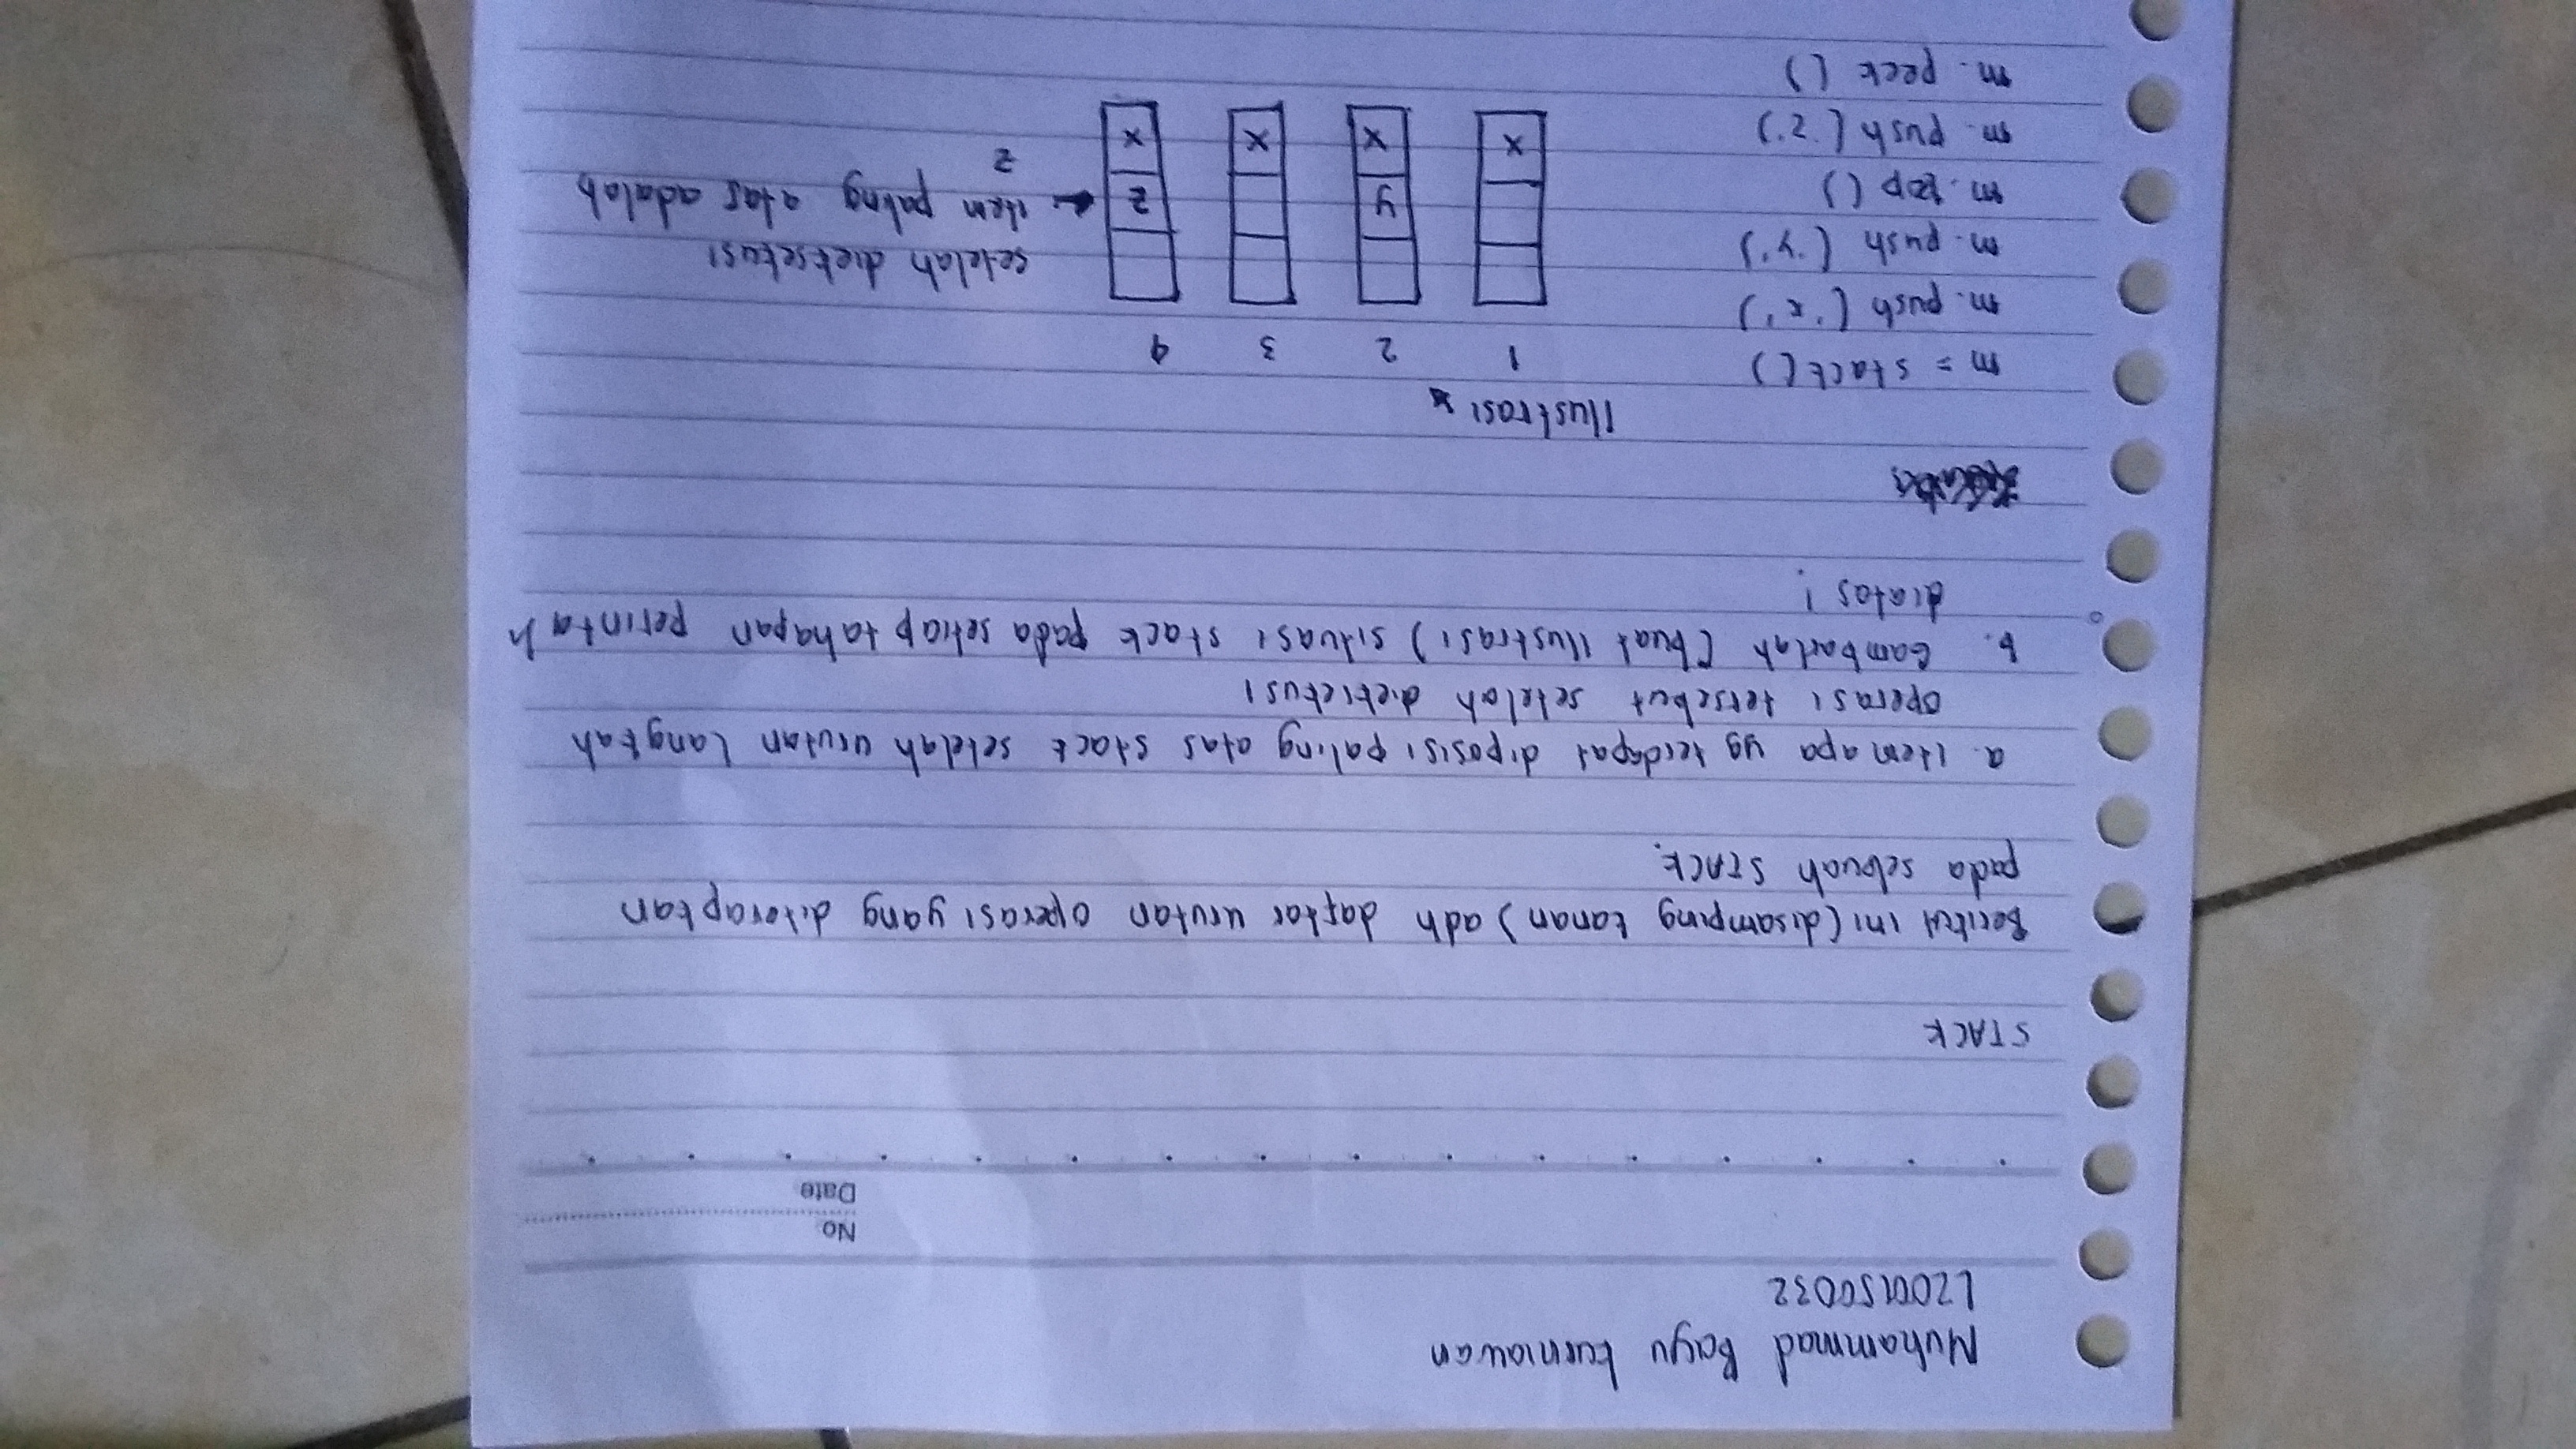 Muhammad Bayu kurniawan
L200150032
No.
Date
STACK
Berikut ini (disamping kanan) adh daftar urutan operasi yang diterapkan
pada sebuah STACK.
a. Item apa yg terdapat diposisi paling atas stack setelah urutan langkah
operasi tersebut setelah diekseskusi
b. Gambarlah (buat ilustrasi) situasi stack pada setiap tahapan perintah
diatas!
ilustrasi
m = stack()
1 2 3 4
m. push ('x')
m. push ('y')
m. pop ()
m. push ('z')
m. peek ()
y z
x x x x
setelah dieksekusi
item paling atas adalah
z